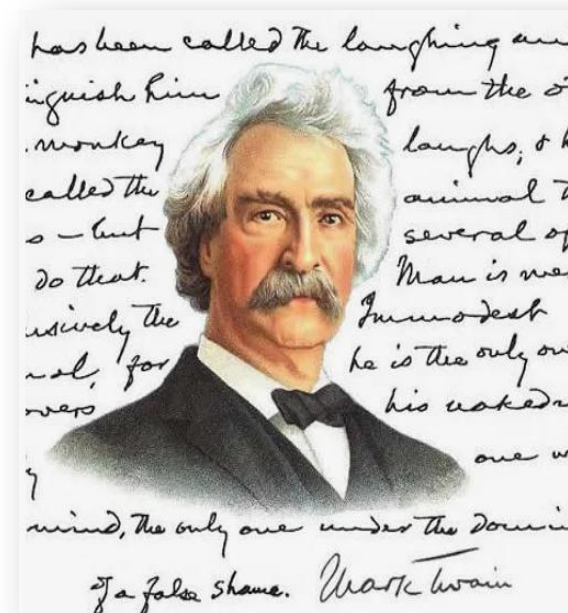 has been called the laughing
inguish him from the
monkey laughs; &
called the animal
s – but several
do that. Man is
usively the Immodest
al, for he is the only
overs his naked
one
mind, the only one under the domin
of a false shame. Mark Twain